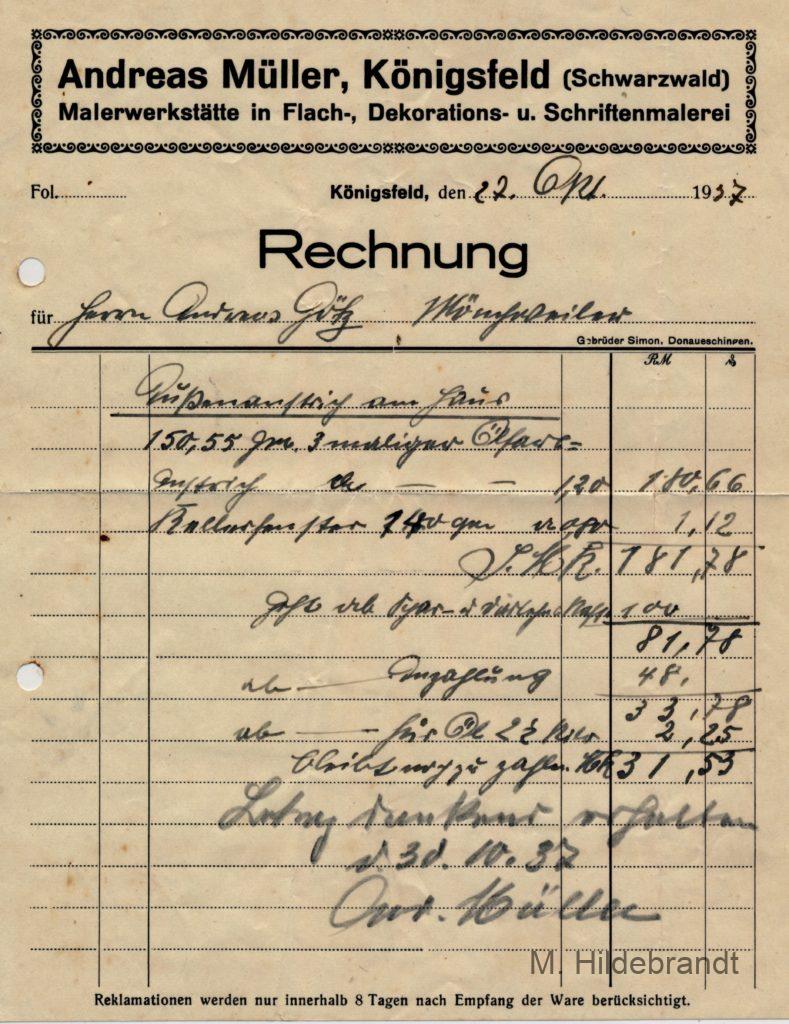 Andreas Müller, Königsfeld (Schwarzwald)
Malerwerkstätte in Flach-, Dekorations- u. Schriftenmalerei
Fol.
Königsfeld, den 22. Okt. 1937
Rechnung
für Herrn Andreas Götz Mönchweiler
Gebrüder Simon, Donaueschingen.
RM ₰
Außenanstrich am Haus
150,55 qm. 3 maliger Ölfarb=
anstrich — — 1,20 180,66
Kellerfenster 140 qm a 080 1,12
S.M.K. 181,78
Geht ab Spar- u Darlehnskasse 100
81,78
ab — Anzahlung 48,
33,78
ab — für Öl 2½ 2,25
bleibt noch zu zahlen MK 31,53
Betrag dankend erhalten
d 30. 10. 37
And. Müller
M. Hildebrandt
Reklamationen werden nur innerhalb 8 Tagen nach Empfang der Ware berücksichtigt.